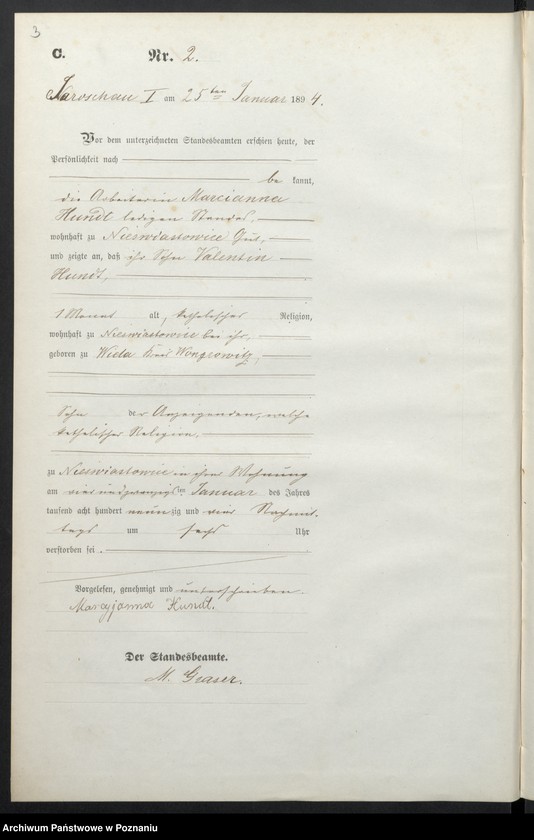 3
C. Nr. 2.
Jaroschau I am 25ten Januar 1894.
Vor dem unterzeichneten Standesbeamten erschien heute, der
Persönlichkeit nach
be kannt,
die Arbeiterin Marcianna
Hundt ledigen Standes,
wohnhaft zu Nieswiastowice Gut,
und zeigte an, daß ihr Sohn Valentin
Hundt,
1 Monat alt, katholischer Religion,
wohnhaft zu Nieswiastowice bei ihr,
geboren zu Wiela Kreis Wongrowitz,
Sohn der Anzeigenden, welche
katholischer Religion,
zu Nieswiastowice in ihrer Wohnung
am vierundzwanzigsten Januar des Jahres
tausend acht hundert neunzig und vier Nachmit-
tags um sechs Uhr
verstorben sei.
Vorgelesen, genehmigt und unterschrieben.
Marcyjanna Hundt.
Der Standesbeamte.
M. Graser.
Archiwum Państwowe w Poznaniu